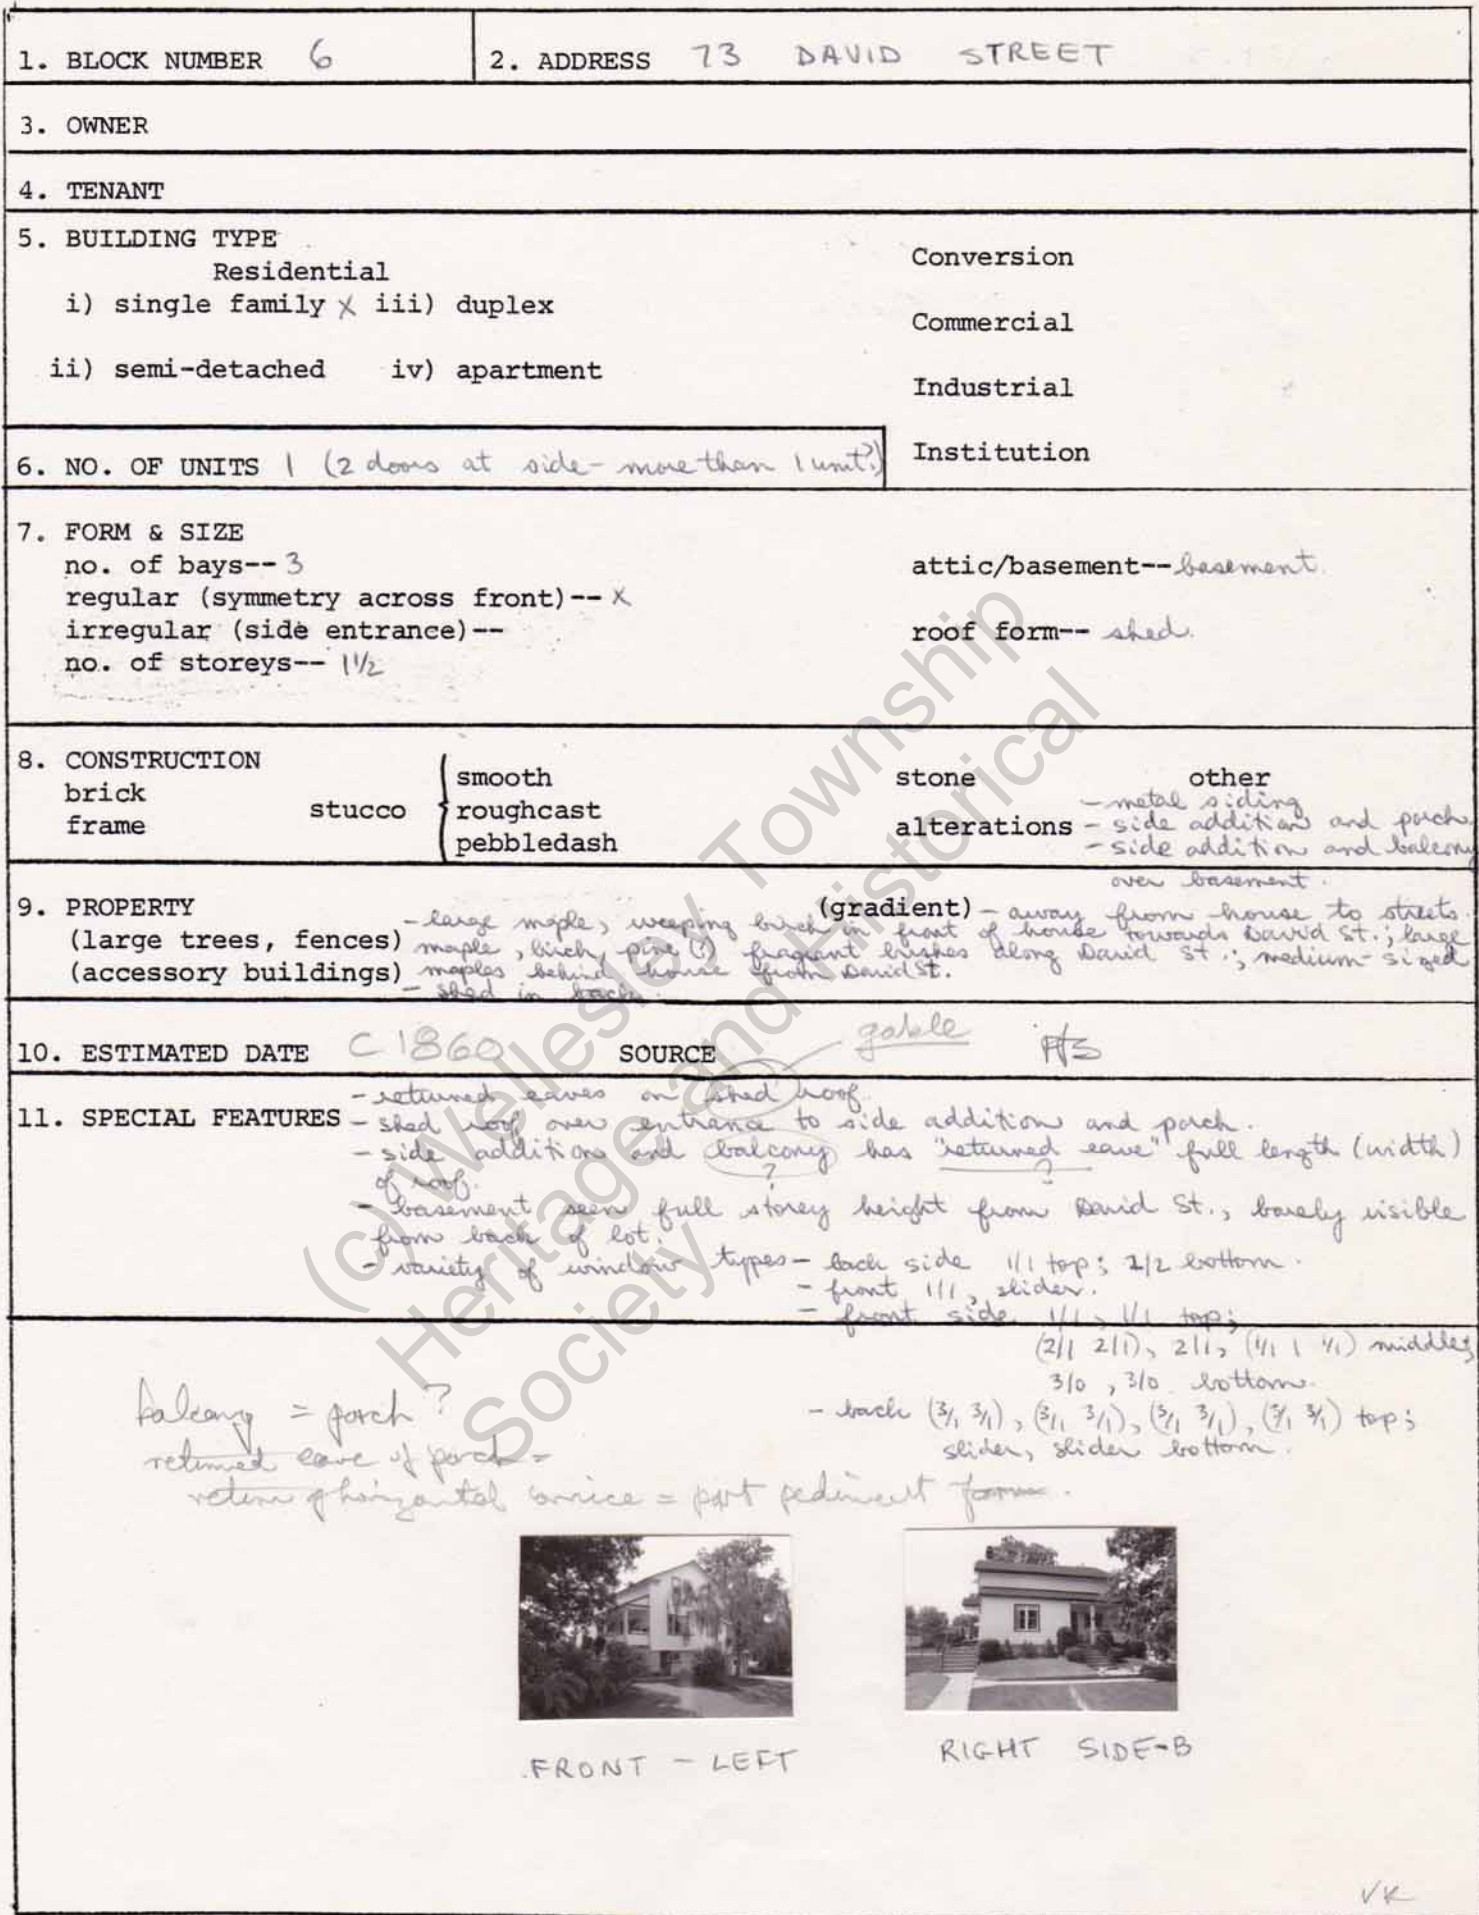 1. BLOCK NUMBER 6 2. ADDRESS 73 DAVID STREET
3. OWNER
4. TENANT
5. BUILDING TYPE
Residential
i) single family X iii) duplex
ii) semi-detached iv) apartment
Conversion
Commercial
Industrial
Institution
6. NO. OF UNITS 1 (2 doors at side - more than 1 unit?)
7. FORM & SIZE
no. of bays-- 3
regular (symmetry across front)-- X
irregular (side entrance)--
no. of storeys-- 1 1/2
attic/basement-- basement.
roof form-- shed.
8. CONSTRUCTION
brick
frame
stucco
smooth
roughcast
pebbledash
stone
other
alterations
- metal siding
- side addition and porch
- side addition and balcony
over basement.
9. PROPERTY
(large trees, fences)
(accessory buildings)
(gradient) - away from house to streets.
- large maple, weeping birch in front of house towards David St.; large
maple, birch, pine (?) fragrant bushes along David St.; medium-sized
maples behind house from David St.
- shed in back.
10. ESTIMATED DATE C 1860 SOURCE
gable
11. SPECIAL FEATURES
- returned eaves on shed roof.
- shed roof over entrance to side addition and porch.
- side addition and balcony has "returned eave" full length (width)
? ?
of roof.
- basement seen full storey height from David St., barely visible
from back of lot.
- variety of window types - back side 1/1 top; 2/2 bottom.
- front 1/1, slider.
- front side 1/1, 1/1 top;
(2/1 2/1), 2/1, (1/1 1 1/1) middle;
3/0, 3/0 bottom.
- back (3/1 3/1), (3/1 3/1), (3/1 3/1), (3/1 3/1) top;
slider, slider bottom.
balcony = porch?
returned eave of porch =
return of horizontal cornice = part pediment form.
FRONT - LEFT
RIGHT SIDE-B
VK
(c) Wellesley Township
Heritage and Historical
Society